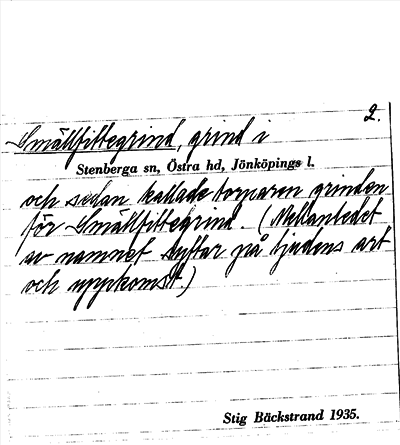 2.
Smällfittegrind, grind i
Stenberga sn, Östra hd, Jönköpings l.
och sedan kallade torparen grinden
för Smällfittegrind. (Mellanledet
av namnet syftar på ljudens art
och uppkomst.)
Stig Bäckstrand 1935.